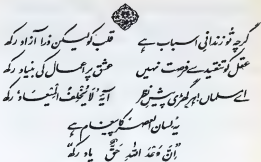 گرچہ تو زندانیِ اسباب ہے قلب کو لیکن ذرا آزاد رکھ
عقل کو تنقید سے فرصت نہیں عشق پر اعمال کی بنیاد رکھ
اے مسلماں! ہر گھڑی پیشِ نظر آیۂ لَا یُخْلِفُ الْمِیْعَاد رکھ
یہ لسان العصر کا پیغام ہے
"اِنَّ وَعْدَ اللّٰہِ حَقٌّ یاد رکھ"